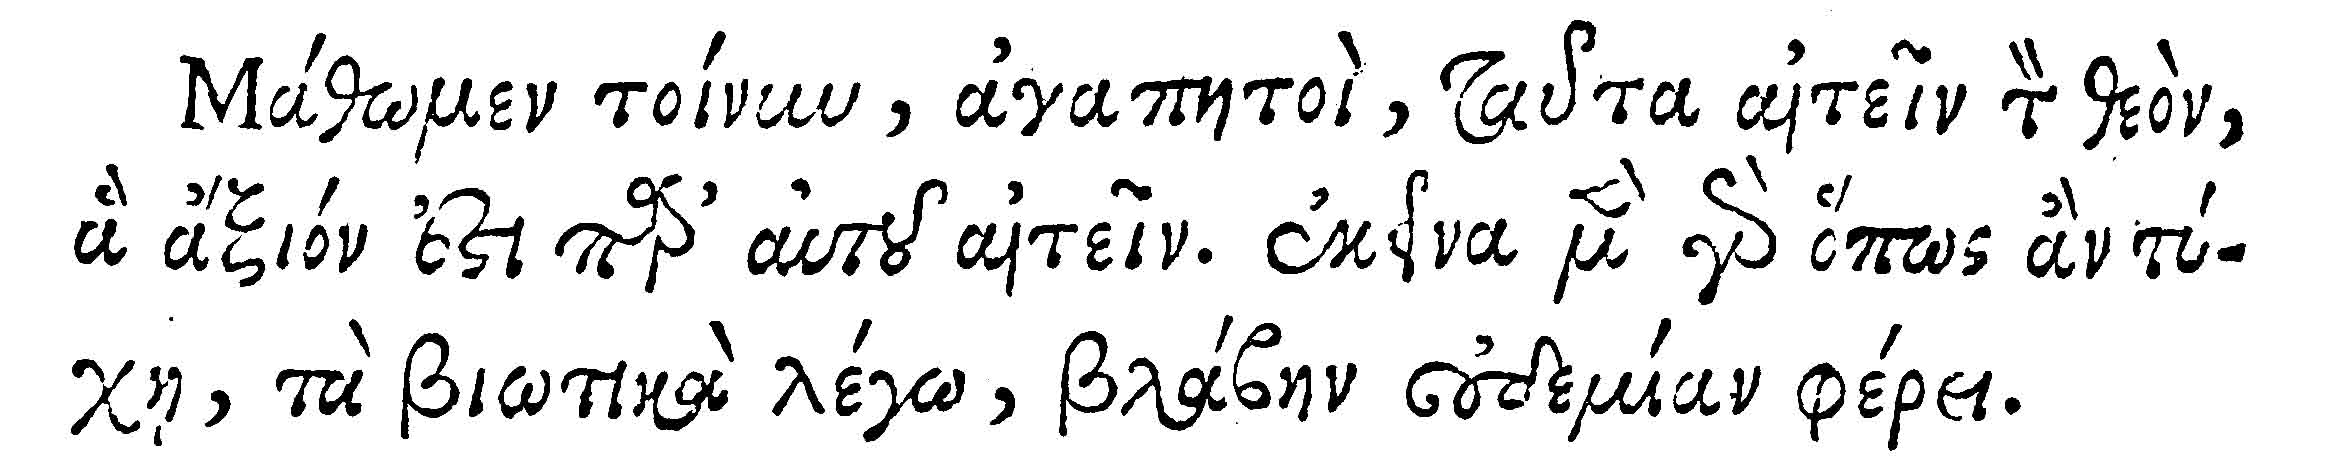 Μάθωμεν τοίνυυ, ἀγαπητοὶ, ταῦτα αἰτεῖν τὸν θεὸν,
ἃ ἄξιόν ἐστι παρ' αὐτοῦ αἰτεῖν. ἐκεῖνα μὲν γὰρ ὅπως ἂν τύ-
χῃ, τὰ βιωτικὰ λέγω, βλάβην οὐδεμίαν φέρει.